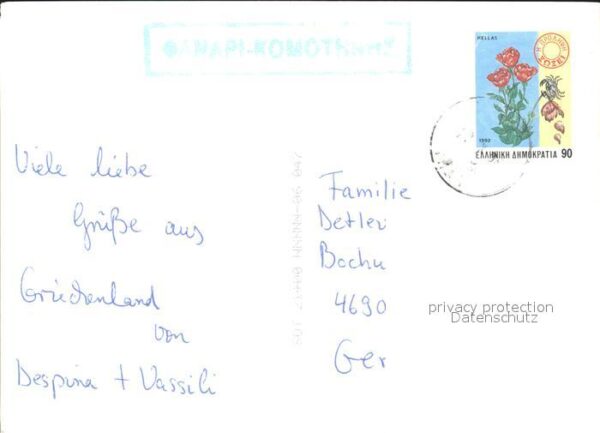 ΦΑΝΑΡΙ-ΚΟΜΟΤΗΝΗΣ
HELLAS
Η ΠΡΟΛΗΨΗ
ΣΩΖΕΙ
1992
ΕΛΛΗΝΙΚΗ ΔΗΜΟΚΡΑΤΙΑ 90
Viele liebe
Grüße aus
Griechenland
von
Despina + Vassili
Familie
Detlev
Bochu
4690
Ger
privacy protection
Datenschutz